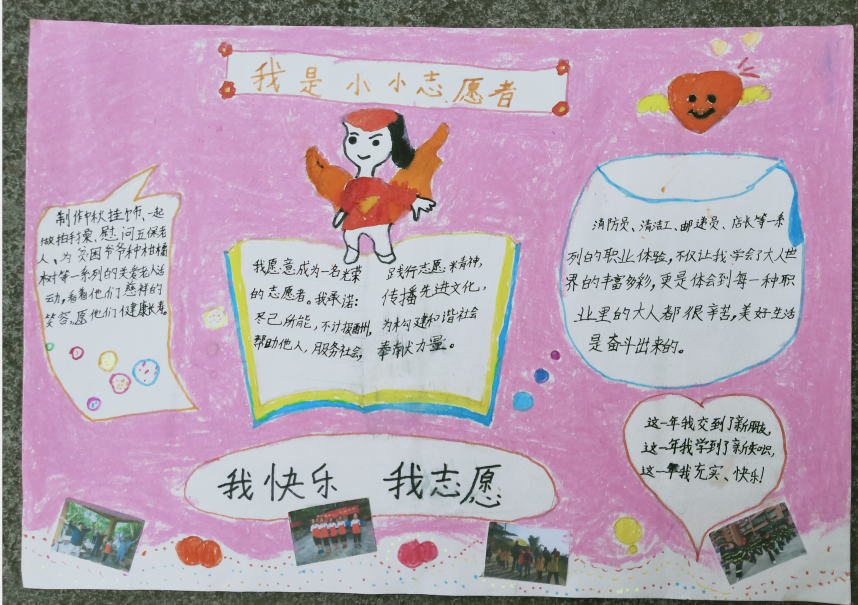 我是小小志愿者
制作秋挂饰、一起
做拍手操、慰问五保老
人、为贫困爷爷种柑橘
树等一系列的关爱老人活
动，看着他们慈祥的
笑容，愿他们健康长寿。
我愿意成为一名光荣
的志愿者。我承诺：
尽己所能，不计报酬，
帮助他人，服务社会，
践行志愿者精神，
传播先进文化，
为构建和谐社会
奉献力量。
消防员、清洁工、邮递员、店长等一系
列的职业体验，不仅让我学会了大人世
界的丰富多彩，更是体会到每一种职
业里的大人都很辛苦，美好生活
是奋斗出来的。
这一年我交到了新朋友，
这一年我学到了新知识，
这一年我充实、快乐！
我快乐 我志愿